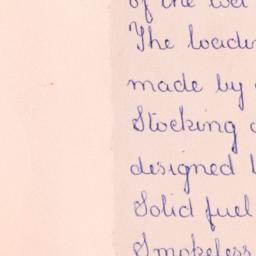 of the wet
The loadin
made by
Stocking
designed
Solid fuel
Smokeless